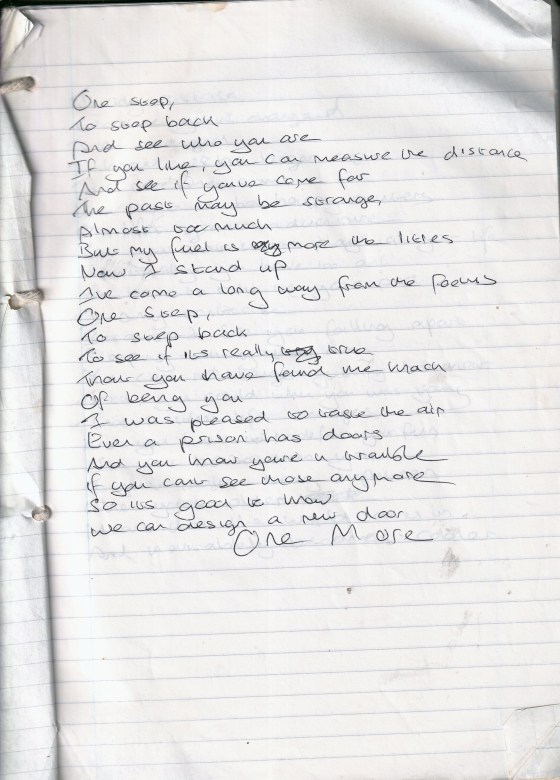 One step,
To step back
And see who you are
If you like, you can measure the distance
And see if youve come far
The past may be strange,
Almost too much
But my fuel is more the
Now I stand up
I've come a long way from the foetus
One step,
To step back
To see if its really true
That you have found the
Of being you
I was pleased to taste the air
Even a prison has doors
And you know youre in trouble
if you cant see those anymore
So its good to know
we can design a new door
One More